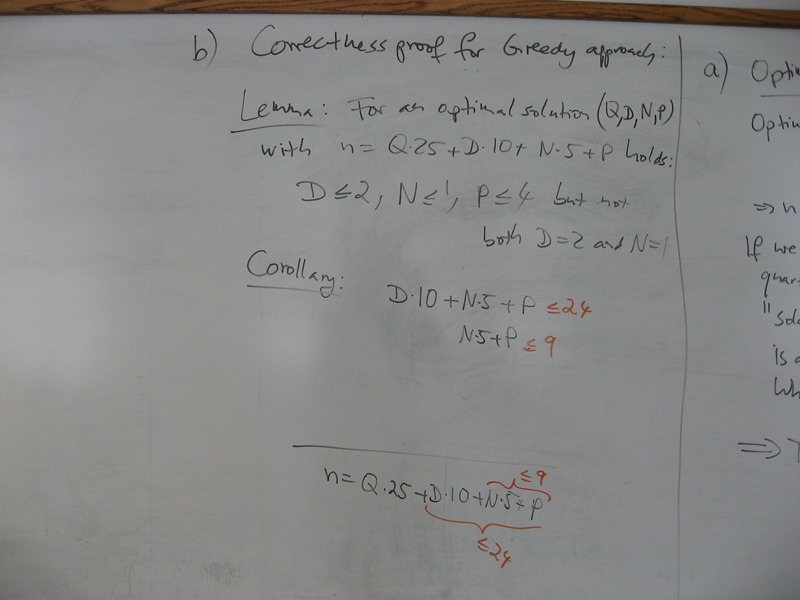 b) Correctness proof for Greedy approach:
Lemma: For an optimal solution (Q,D,N,P)
with n = Q·25+D·10+ N·5+P holds:
D ≤ 2, N ≤ 1, P ≤ 4 but not
both D=2 and N=1
Corollary:
D·10+N·5+P ≤24
N·5+P ≤ 9
≤9
n = Q·25+D·10+N·5+P
≤24
a)
⇒ n
If we
is
⇒